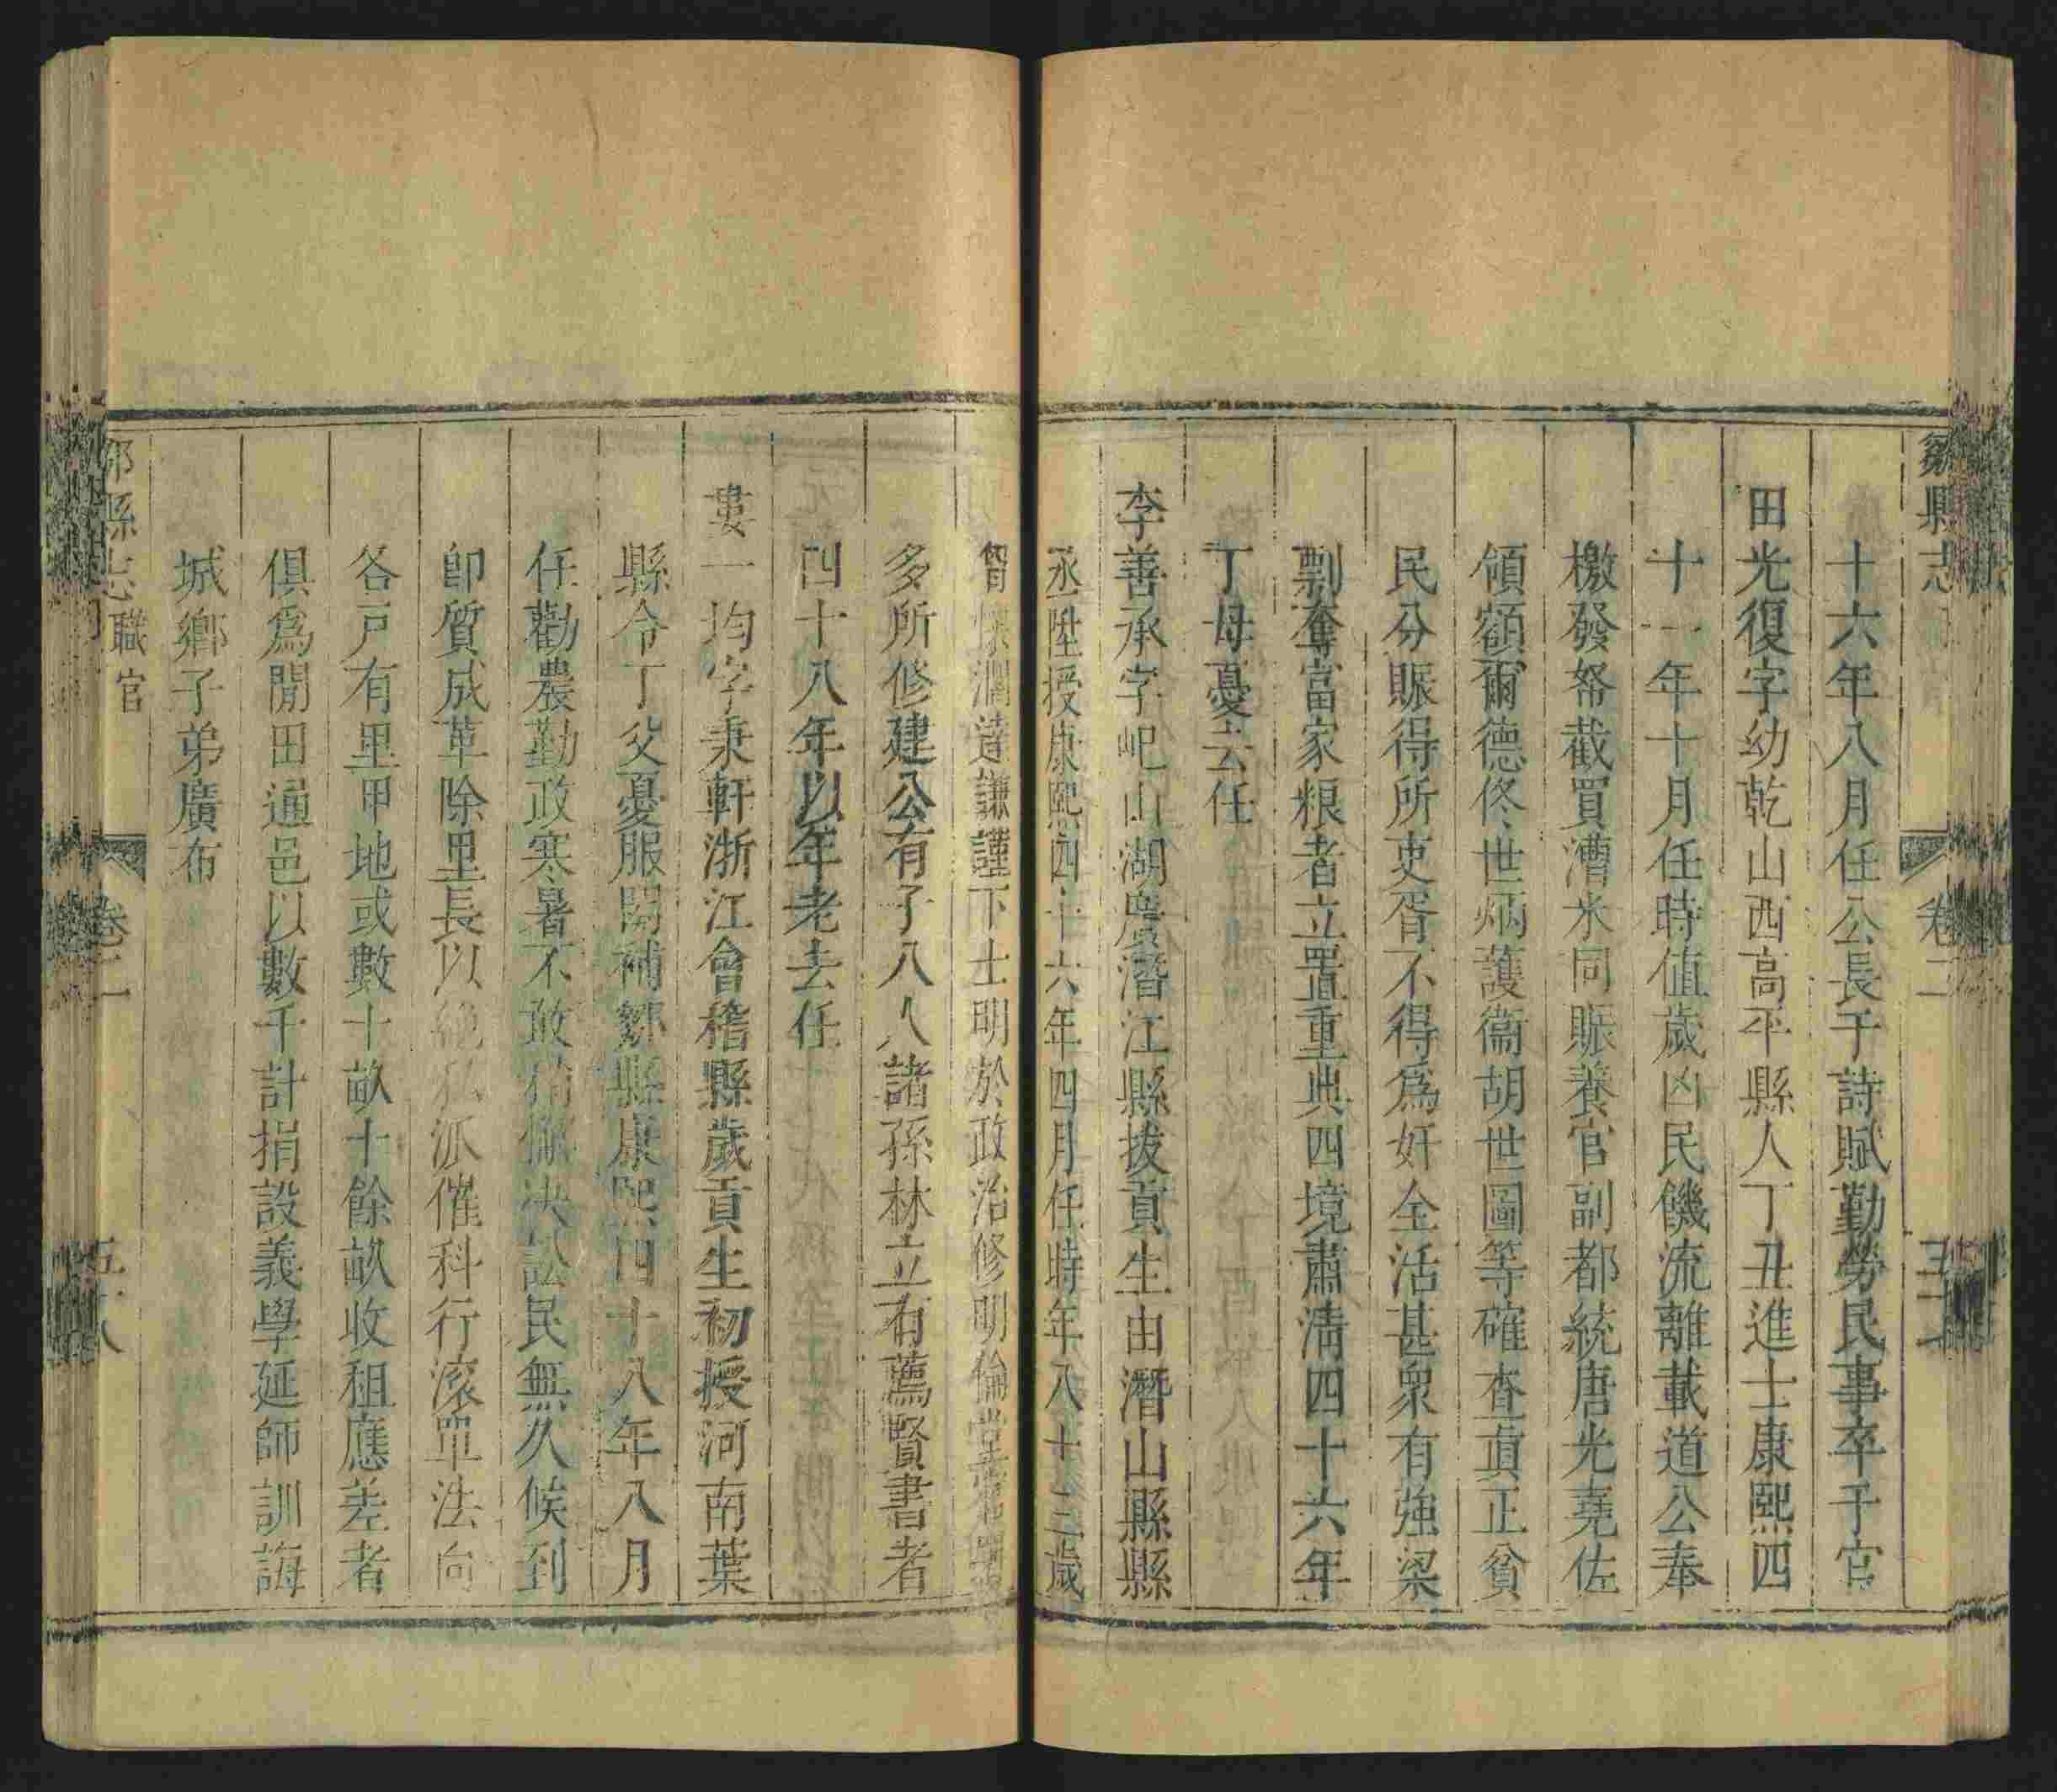 鄒縣志
卷二
十六年八月任公長于詩賦勤勞民事卒于官
田光復字幼乾山西高平縣人丁丑進士康熙四
十一年十月任時值歲凶民饑流離載道公奉
檄發帑截買漕米同賑養官副都統唐光堯佐
領額爾德佟世炳護衞胡世圖等確查真正貧
民分賑得所吏胥不得為奸全活甚衆有強梁
剽奪富家粮者立置重典四境肅淸四十六年
丁母憂去任
李善承字屺山湖廣潛江縣拔貢生由潛山縣縣
丞陞授康熙四十六年四月任時年八十三歲
智懷濶達謙謹下士明於政治修明倫堂
多所修建公有子八人諸孫林立有薦賢書者
四十八年以年老去任
婁一均字秉軒浙江會稽縣歲貢生初授河南葉
縣令丁父憂服闋補鄒縣康熙四十八年八月
任勸農勤政寒暑不敢稍懈決訟民無久候到
卽質成革除里長以絶私派催科行滚單法向
各戸有里甲地或數十畝十餘畝收租應差者
俱爲閒田通邑以數千計捐設義學延師訓誨
城鄉子弟廣布
鄒縣志
職官
卷二
五十八